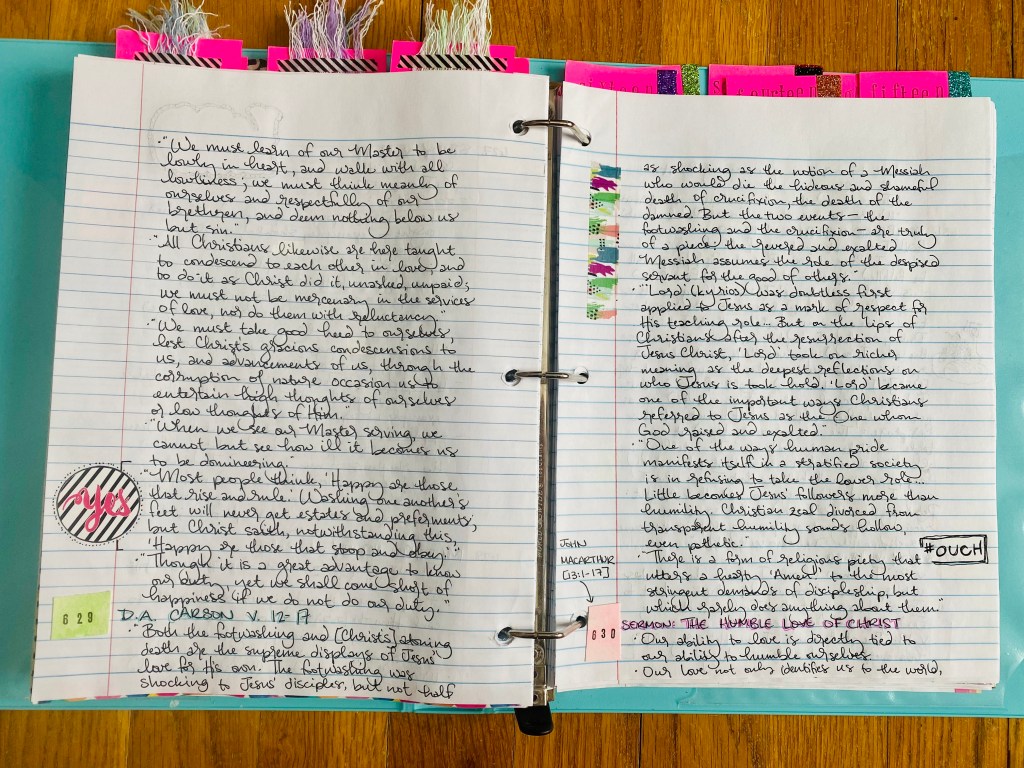 ·"We must learn of our Master to be
lowly in heart, and walk with all
lowliness; we must think meanly of
ourselves and respectfully of our
brethren, and deem nothing below us
but sin."
·"All Christians likewise are here taught
to condescend to each other in love, and
to do it as Christ did it, unasked, unpaid;
we must not be mercenary in the services
of love, nor do them with reluctancy."
·"We must take good heed to ourselves,
lest Christ's gracious condescensions to
us, and advancements of us, through the
corruption of nature occasion us to
entertain high thoughts of ourselves
or low thoughts of Him."
·"When we see our Master serving, we
cannot but see how ill it becomes us
to be domineering."
·"Most people think, 'Happy are those
that rise and rule.' Washing one another's
feet will never get estates and preferments,
but Christ saith, notwithstanding this,
'Happy are those that stoop and obey.'"
·"Though it is a great advantage to know
our duty, yet we shall come short of
happiness if we do not do our duty."
yes
629
D.A. CARSON V. 12-17
·"Both the footwashing and [Christ's] atoning
death are the supreme displays of Jesus'
love for His own. The footwashing was
shocking to Jesus' disciples, but not half
as shocking as the notion of a Messiah
who would die the hideous and shameful
death of crucifixion, the death of the
damned. But the two events — the
footwashing and the crucifixion — are truly
of a piece: the revered and exalted
Messiah assumes the role of the despised
servant for the good of others."
·"'Lord' (kyrios) was doubtless first
applied to Jesus as a mark of respect for
His teaching role... But on the lips of
Christians after the resurrection of
Jesus Christ, 'Lord' took on richer
meaning as the deepest reflections on
who Jesus is took hold. 'Lord' became
one of the important ways Christians
referred to Jesus as the One whom
God raised and exalted."
·"One of the ways human pride
manifests itself in a stratified society
is in refusing to take the lower role...
Little becomes Jesus' followers more than
humility. Christian zeal divorced from
transparent humility sounds hollow,
even pathetic."
#OUCH
·"There is a form of religious piety that
utters a hearty 'Amen!' to the most
stringent demands of discipleship, but
which rarely does anything about them."
JOHN
MACARTHUR
[13:1-17]
630
SERMON: THE HUMBLE LOVE OF CHRIST
·Our ability to love is directly tied to
our ability to humble ourselves.
·Our love not only identifies us to the world,